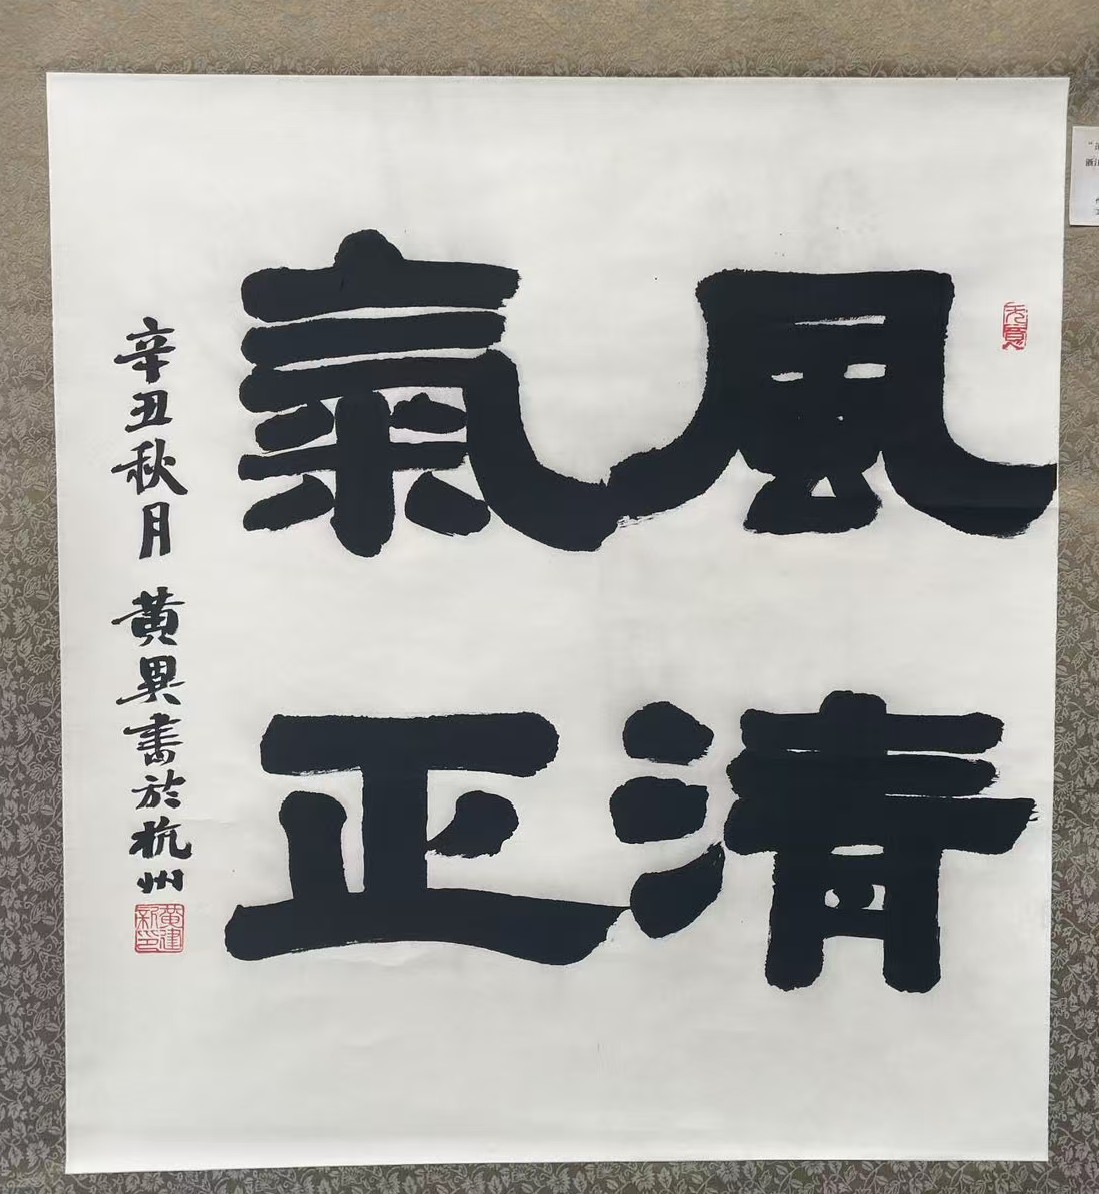 風清
氣正
辛丑秋月 黄異書於杭州
黄建新印